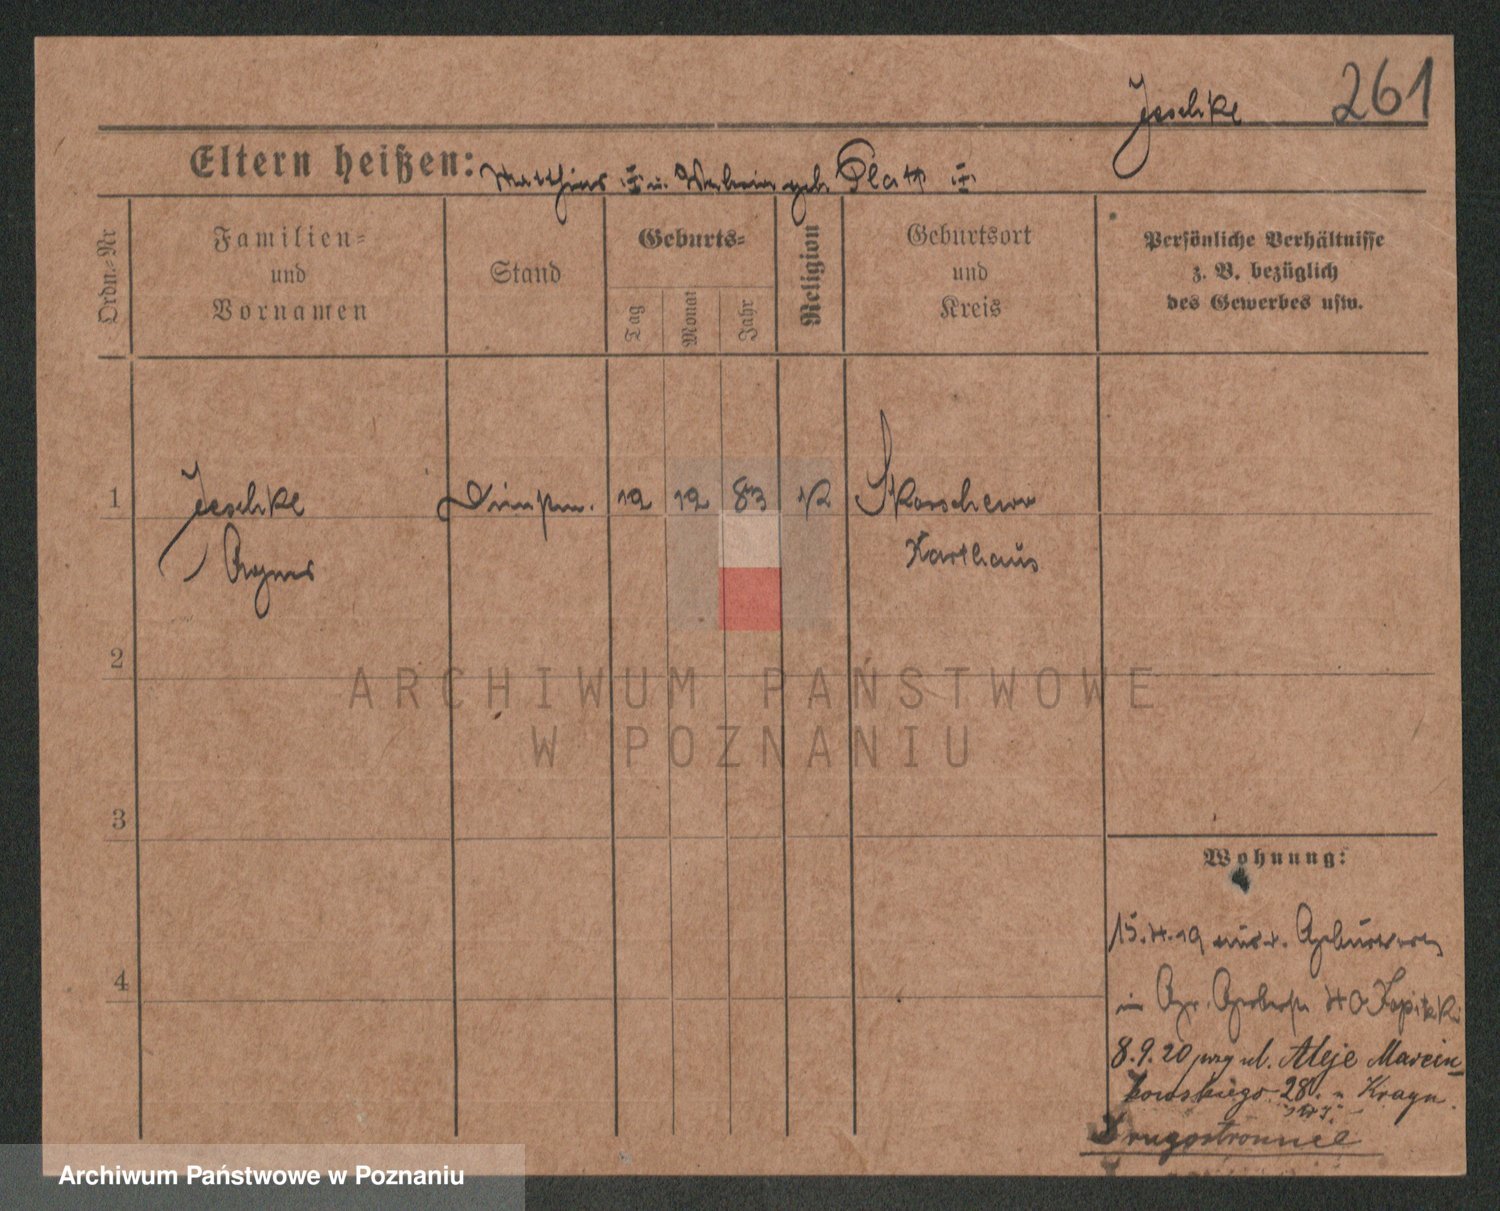 Jeschke 261
Eltern heißen: Matthias u. geb. Platt
Ordn.-Nr
Familien-
und
Vornamen
Stand
Geburts-
Tag
Monat
Jahr
Religion
Geburtsort
und
Kreis
Persönliche Verhältnisse
z. B. bezüglich
des Gewerbes usw.
1 Jeschke 12 12 83 Skorschewo
Agnes Karthaus
2
ARCHIWUM PAŃSTWOWE
W POZNANIU
3
Wohnung:
15.4.19
4
in Gr. Gerberstr 40
8.9.20 przy ul. Aleje Marcin-
kowskiego 28.
Drugostronnie
Archiwum Państwowe w Poznaniu